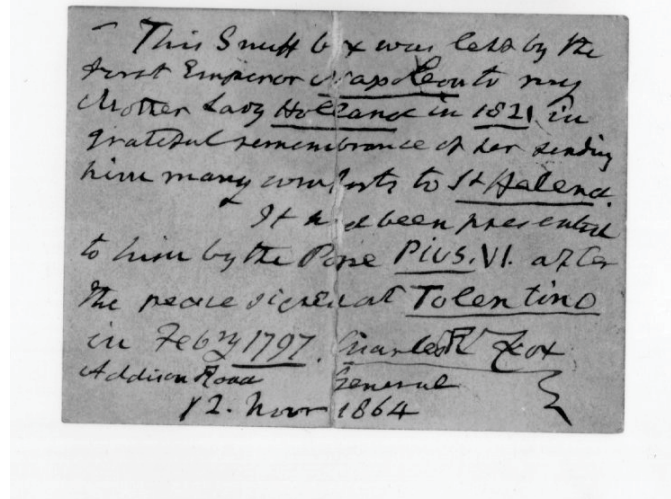 This Snuff box was left by the
first Emperor Napoleon to my
Mother Lady Holland in 1821 in
grateful remembrance of her sending
him many comforts to St Helena.
It had been presented
to him by the Pope Pius. VI. after
the peace signed at Tolentino
in Feb^ry 1797. Charles R Fox
Addison Road General
12. Nov^r 1864